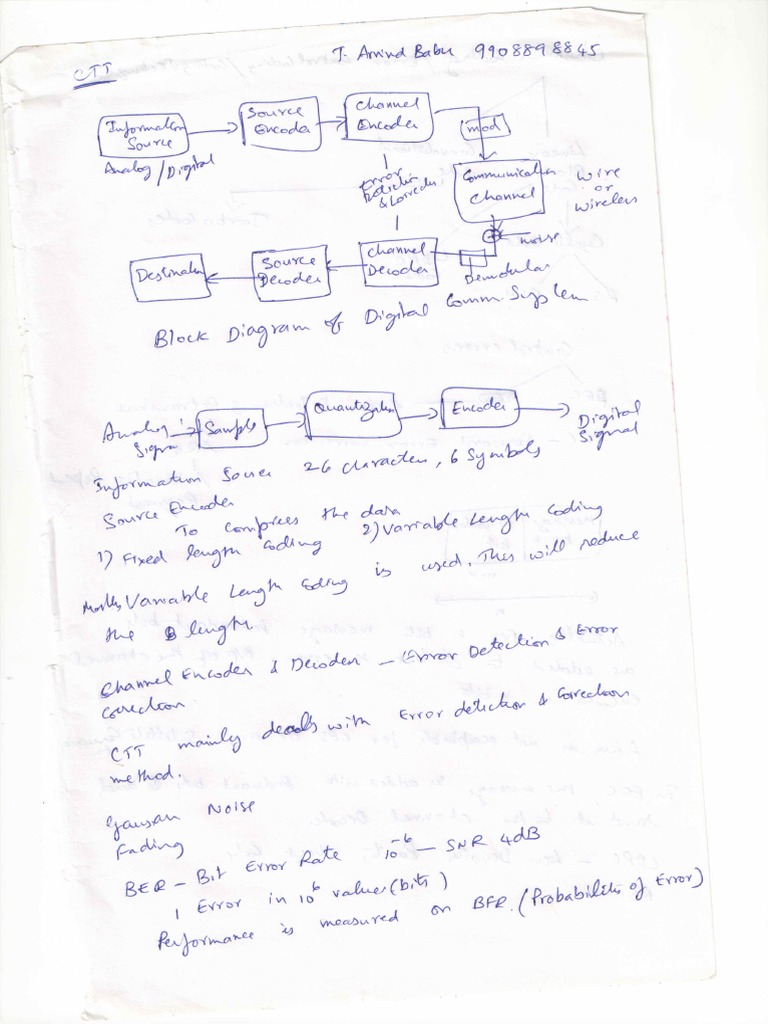 CTT
T. Arvind Babu 9908898845
Information Source
Source Encoder
Channel Encoder
mod
Analog / Digital
Error
& Correction
Communication Channel
wire or wireless
noise
Destination
Source Decoder
Channel Decoder
Demodulator
Block Diagram of Digital Comm. System
Analog Signal
Sample
Quantization
Encoder
Digital Signal
Information Source 26 characters, 6 Symbols
Source Encoder
To comprees the data
1) Fixed length coding 2) Variable Length Coding
Variable Length Coding is used. This will reduce
the length.
Channel Encoder & Decoder – Error Detection & Error
Correction.
CTT mainly deals with Error detection & Correction
method.
Gausan Noise
Fading
BER – Bit Error Rate 10⁻⁶ — SNR 4dB
1 Error in 10⁶ values (bits)
Performance is measured on BER. (Probabilities of Error)